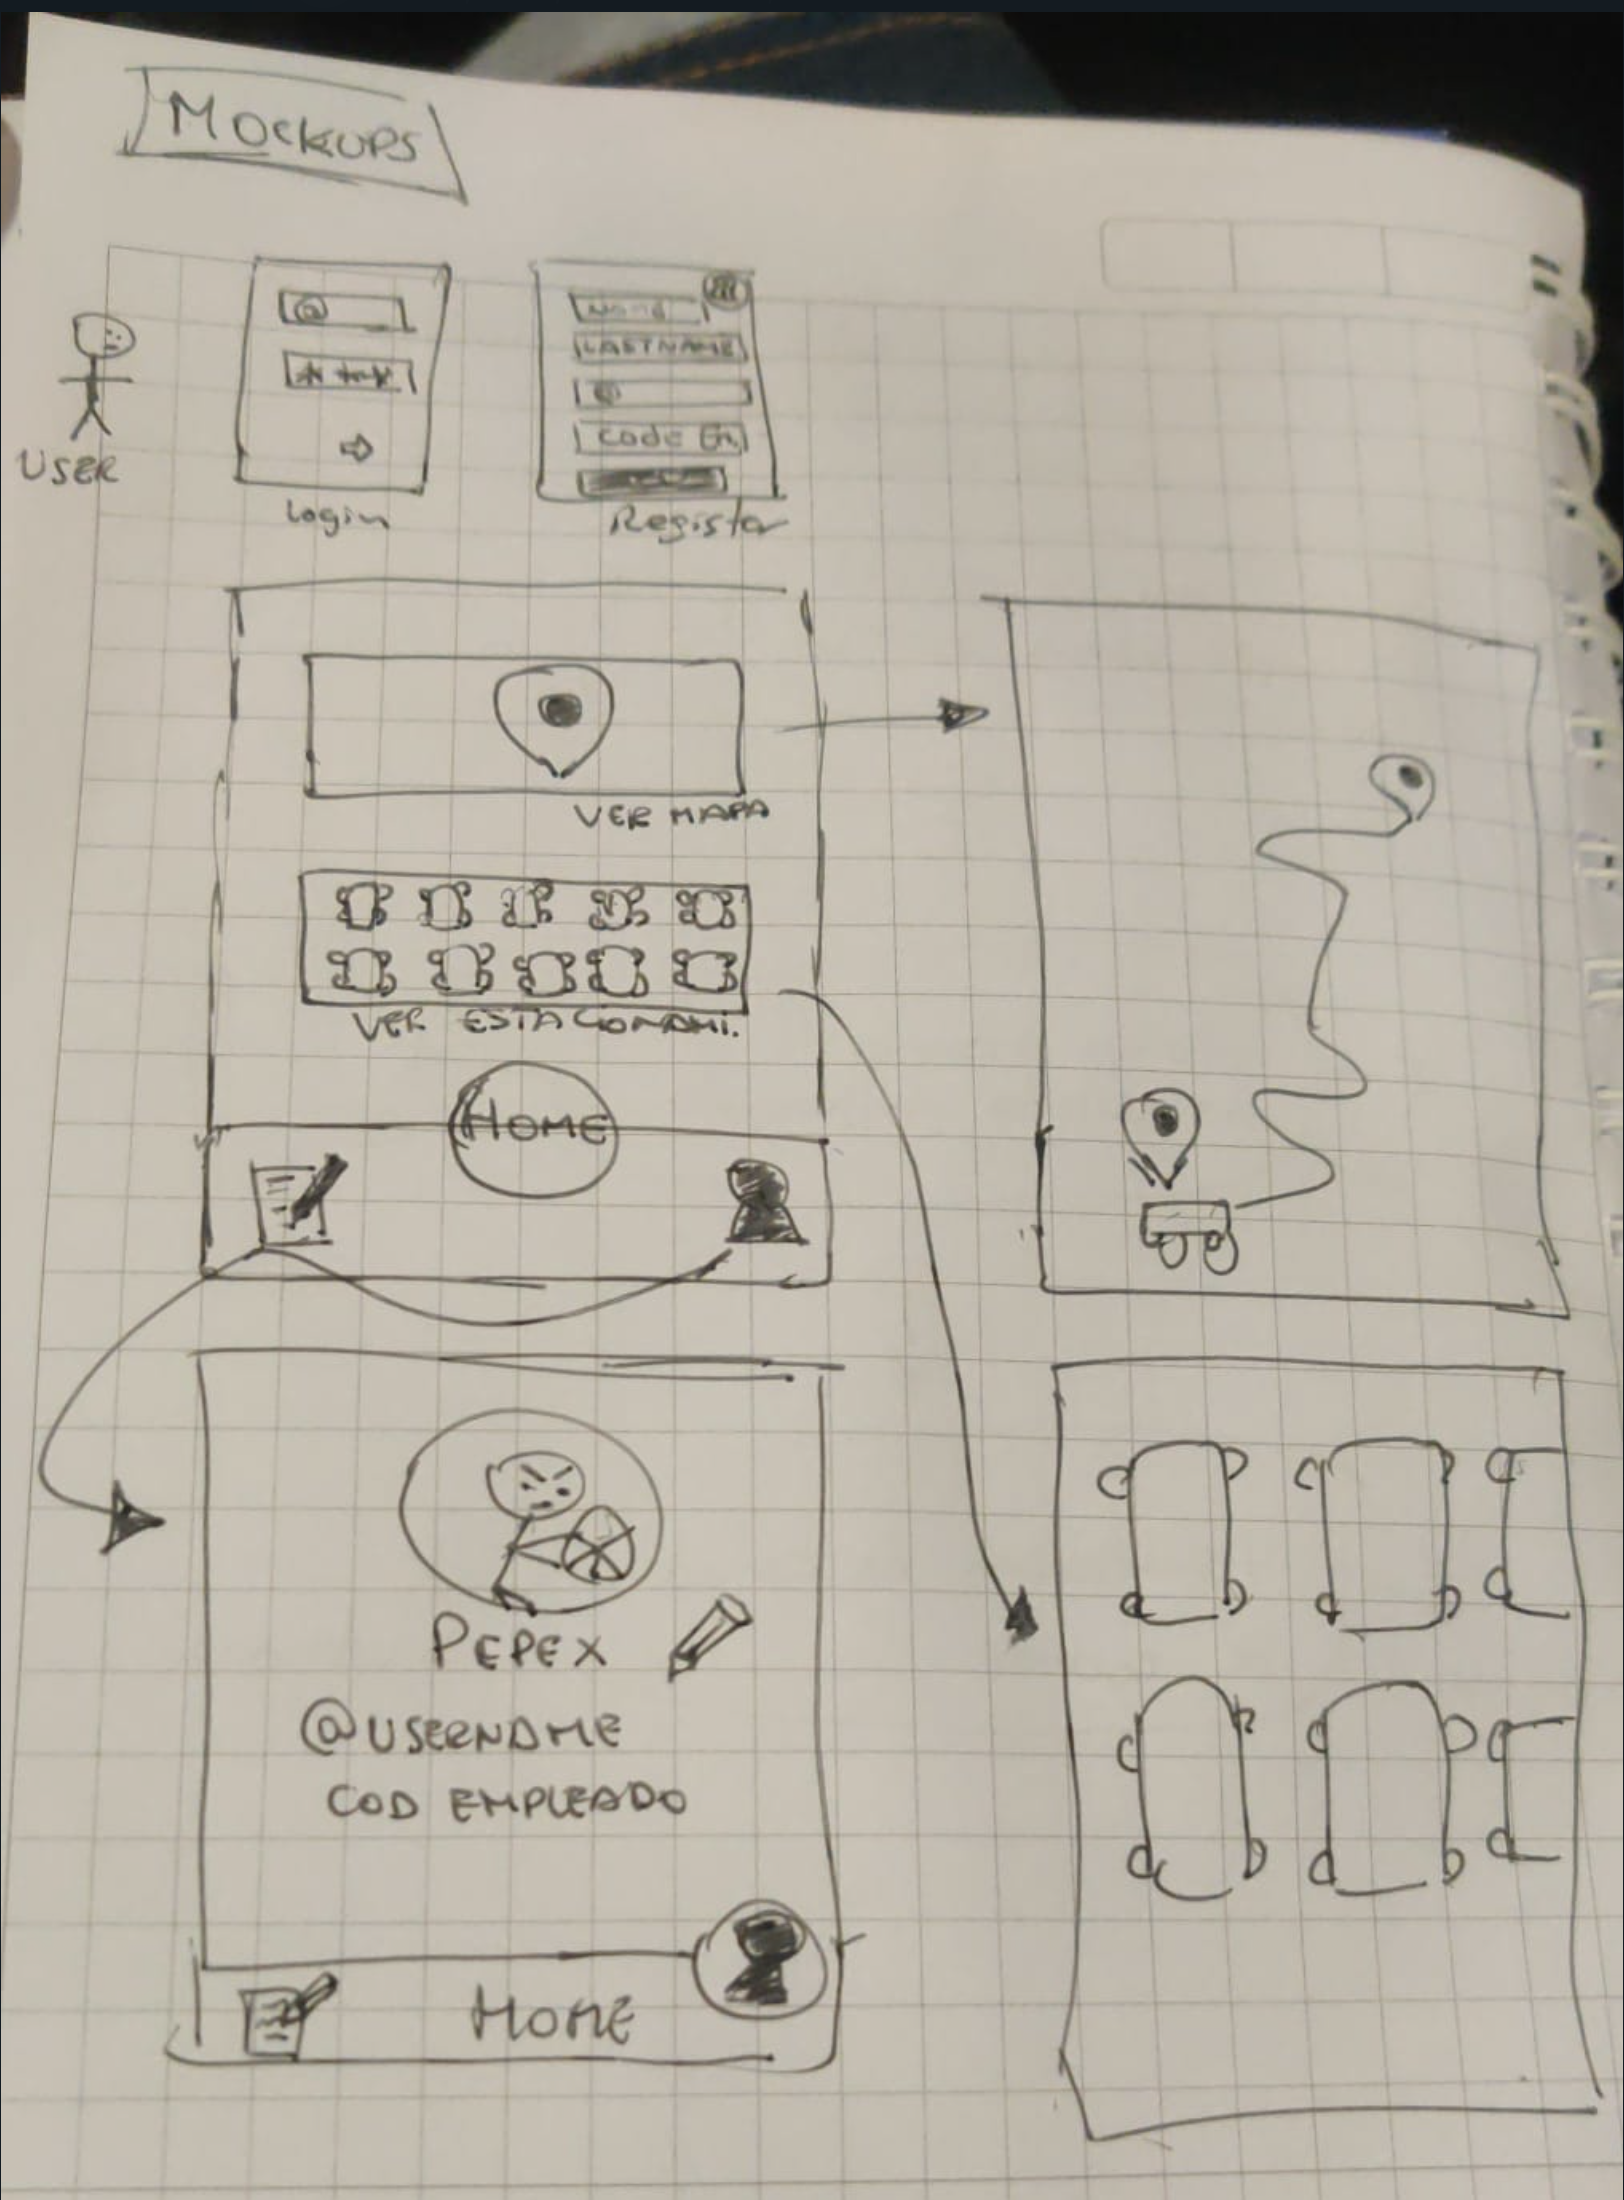 MOCKUPS
USER
@
Login
LASTNAME
@
Code Em.
Register
VER MAPA
VER ESTACIONAMI.
HOME
PEPEX
@USERNAME
COD EMPLEADO
HOME